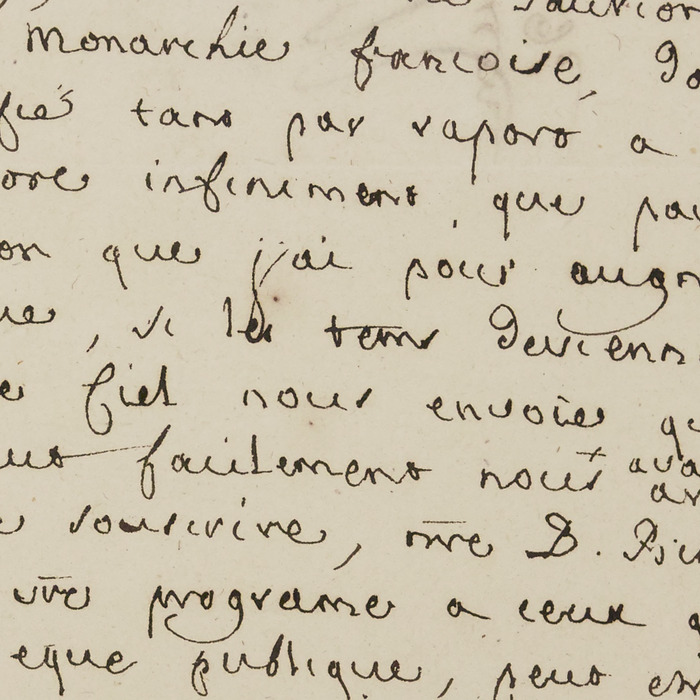 Monarchie françoise, Do
fié tant par raport a
ore infiniment, que pa
on que j'ai pour augm
ue, si les tems devienn
e Ciel nous envoie qu
facilement nous ava
e souscrire, nre D.
vre programe a ceux q
eque publique, peut en